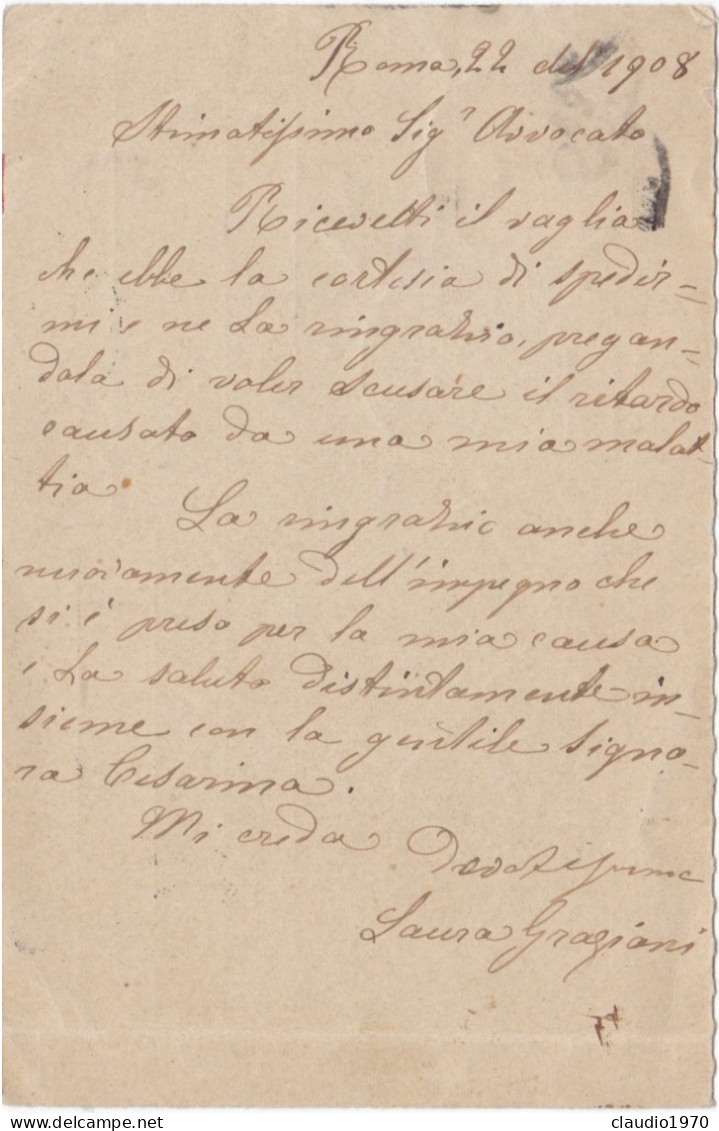 Roma, 22 del 1908
Stimatissimo Sigr Avvocato
Ricevetti il vaglia
che ebbe la cortesia di spedir=
mi e ne La ringrazio, pregan=
dola di voler scusare il ritardo
causato da una mia malat-
tia. La ringrazio anche
nuovamente dell'impegno che
si è preso per la mia causa
e La saluto distintamente in-
sieme con la gentile Signo-
ra Cesarina.
Mi creda Devotissima
Laura Graziani
claudio1970